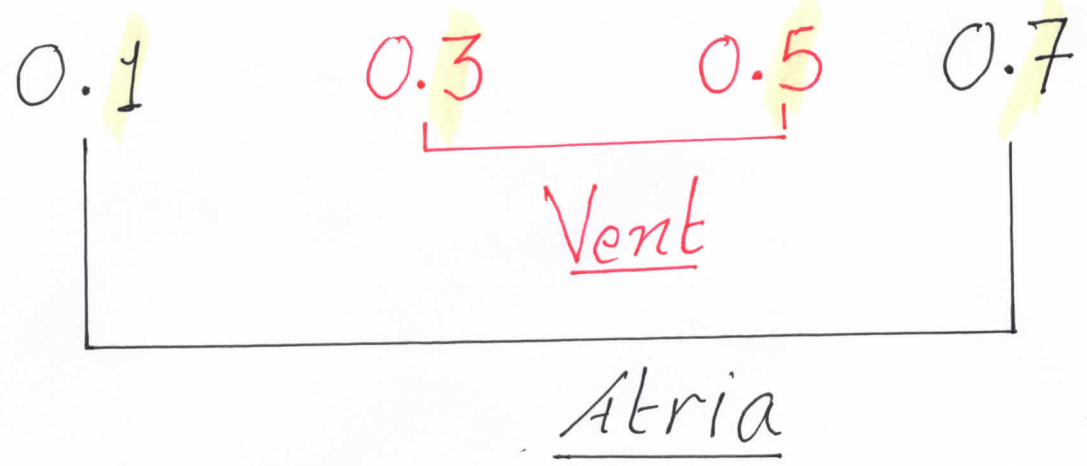 0.1 0.3 0.5 0.7
Vent
Atria